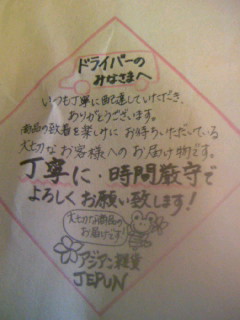 ドライバーの
みなさまへ
いつも丁寧に配達していただき、
ありがとうございます。
商品の到着を楽しみに お待ちいただいている
大切な お客様への お届け物です。
丁寧に・時間厳守で
よろしくお願い致します!
大切な商品の
お届けです!
アジアン雑貨
JEPUN